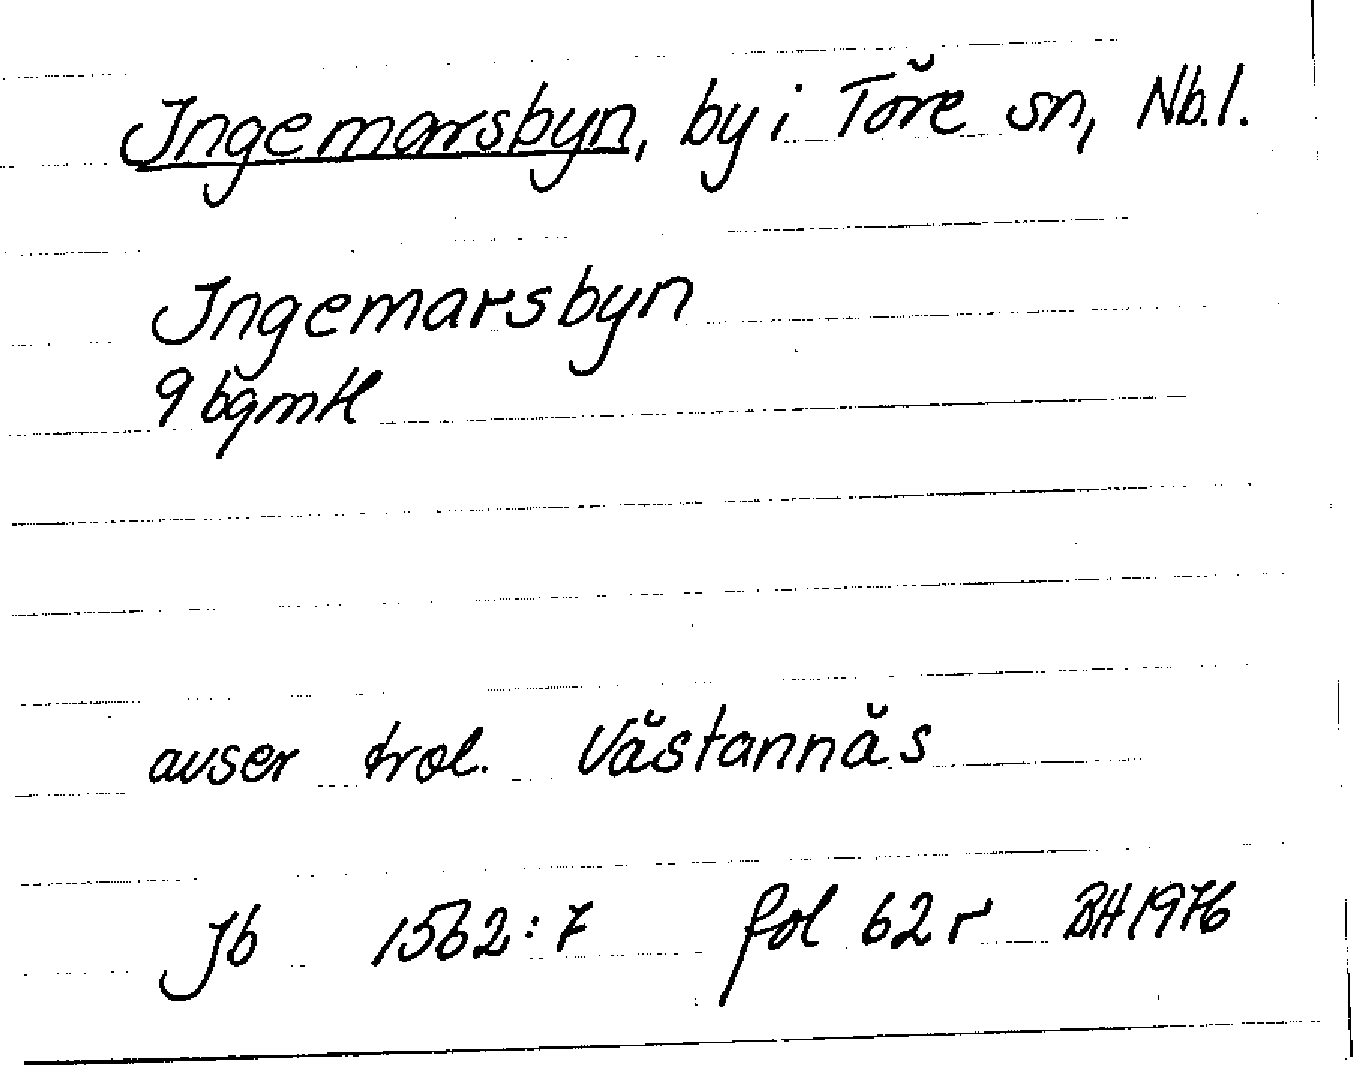 Ingemarsbyn, by i Töre sn, Nb.l.
Ingemarsbyn
9 bgmtl
avser trol. Västannäs
Jb 1562:7 fol 62 r BH 1976